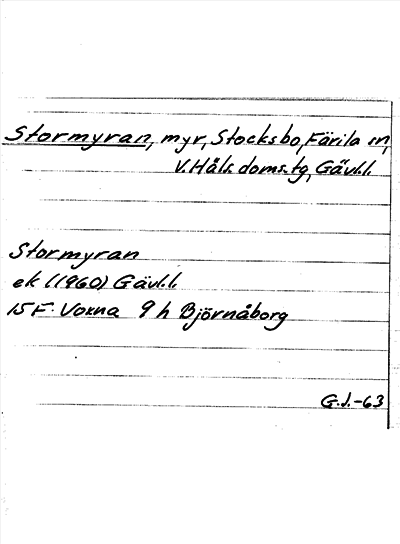 Stormyran, myr, Stocksbo, Färila sn,
V. Häls. doms.tg, Gävl.l.
Stormyran
ek (1960) Gävl.l.
15 F: Voxna 9 h Björnåborg
G.J.-63